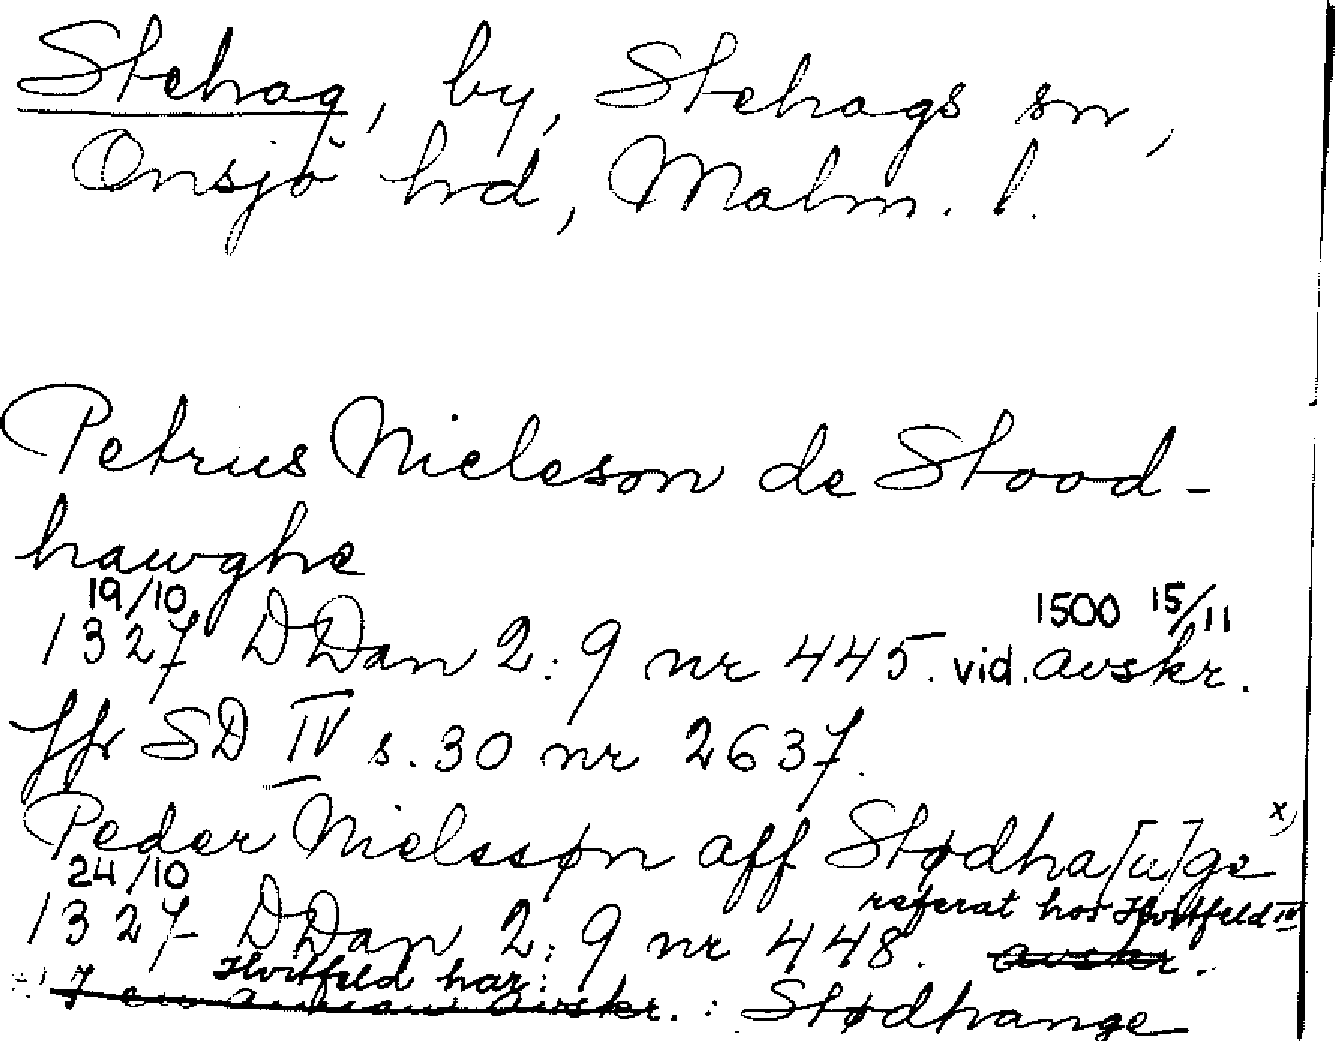 Stehag, by, Stehags sn,
Onsjö hrd, Malm. l.
Petrus Nielsson de Stood-
hawghe
19/10 1500 15/11
1327 DDan 2:9 nr 445. vid. avskr.
Jfr SD IV s. 30 nr 2637.
Peder Nielssøn aff Stødha[u]ge x)
24/10 referat hos Hvitfeld IV
1327 DDan 2:9 nr 448. avskr.
Hvitfeld har:
x) I en annan avskr. : Stødhange